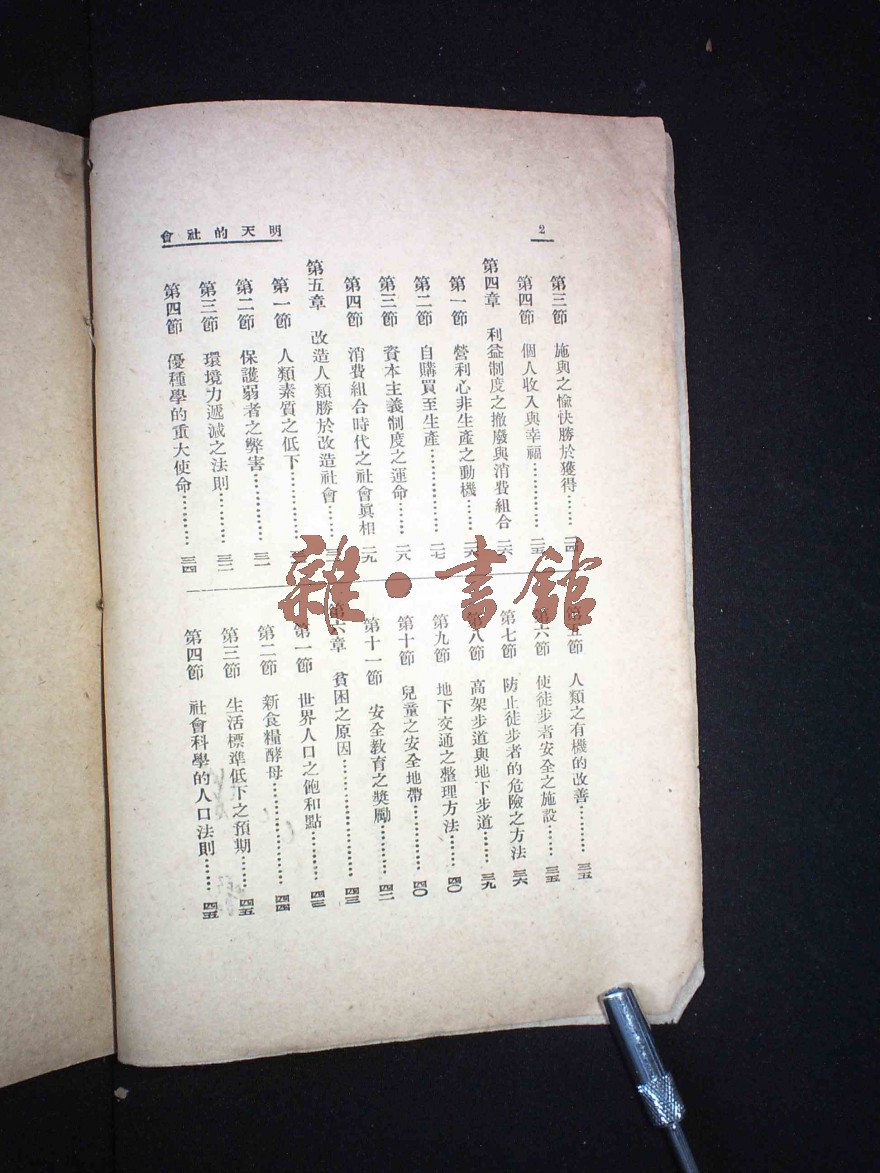 2
明天的社會
第三節 施與之愉快勝於獲得……二四
第四節 個人收入與幸福………二五
第四章 利益制度之撤廢與消費組合 二六
第一節 營利心非生產之動機……二六
第二節 自購買至生產…………二七
第三節 資本主義制度之運命……二八
第四節 消費組合時代之社會眞相 二九
第五章 改造人類勝於改造社會……
第一節 人類素質之低下…………
第二節 保護弱者之弊害…………三一
第三節 環境力遞減之法則………三二
第四節 優種學的重大使命………三四
第五節 人類之有機的改善………三五
第六節 使徒步者安全之施設……三五
第七節 防止徒步者的危險之方法 三六
第八節 高架步道與地下步道……三九
第九節 地下交通之整理方法……四〇
第十節 兒童之安全地帶…………四〇
第十一節 安全教育之獎勵………四二
第六章 貧困之原因………………四三
第一節 世界人口之飽和點………四三
第二節 新食糧酵母………………四四
第三節 生活標準低下之預期……四五
第四節 社會科學的人口法則……四五
雜·書館